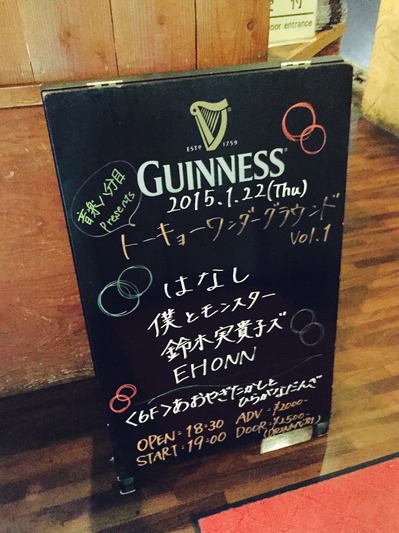 受付
oor entrance
ESTD 1759
GUINNESS
2015.1.22(Thu)
音楽八分目
Presents
トーキョーワンダーグラウンド
Vol.1
はなし
僕とモンスター
鈴木実貴子ズ
EHONN
<6F>あおやぎたかしと
ひらがなだんぎ
OPEN=18:30 ADV=¥2000-
START=19:00 DOOR=¥2500-